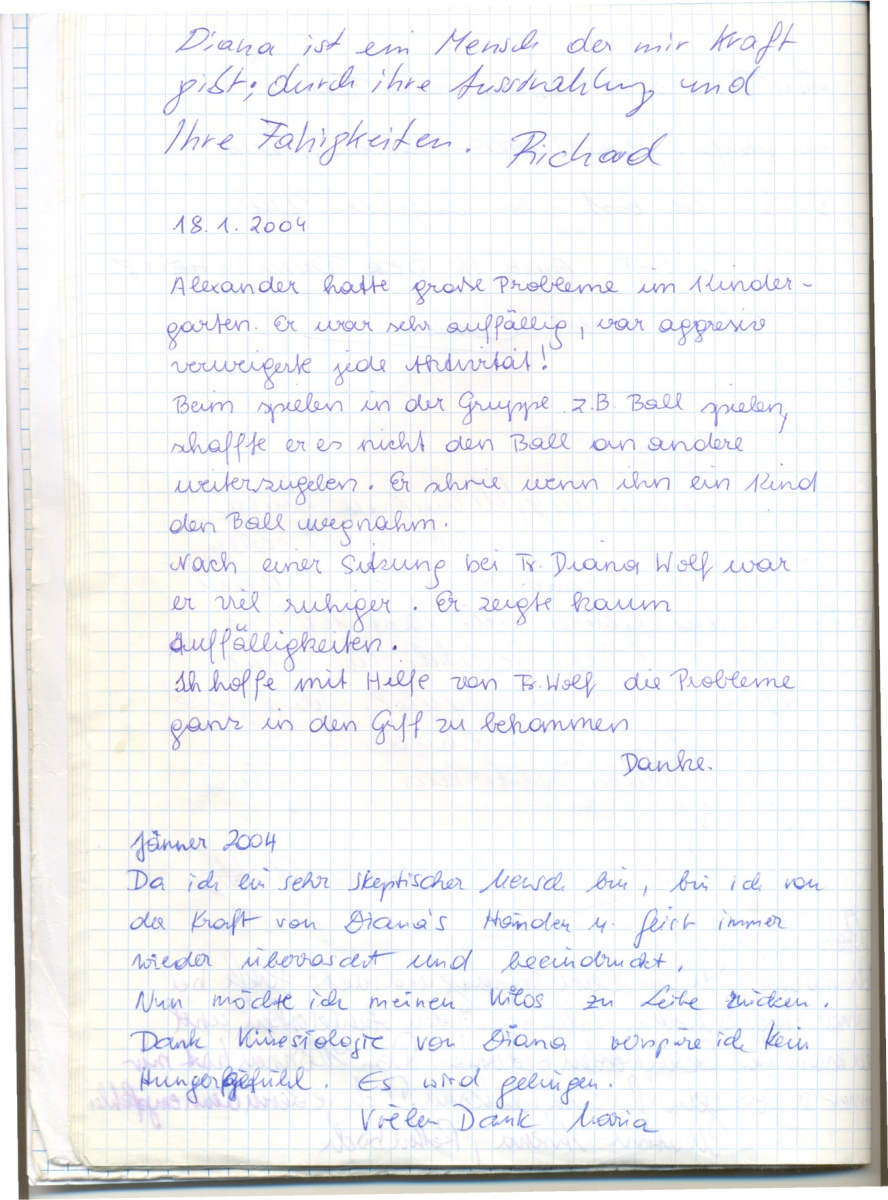 Diana ist ein Mensch der mir Kraft
gibt; durch ihre Ausstrahlung und
Ihre Fähigkeiten. Richard
18.1.2004
Alexander hatte große Probleme im Kinder-
garten. Er war sehr auffällig, war aggresiv
verweigerte jede Aktivität!
Beim spielen in der Gruppe z.B. Ball spielen,
schaffte er es nicht den Ball an andere
weiterzugeben. Er schrie wenn ihn ein Kind
den Ball wegnahm.
Nach einer Sitzung bei Fr. Diana Wolf war
er viel ruhiger. Er zeigte kaum
Auffälligkeiten.
Ich hoffe mit Hilfe von Fr. Wolf die Probleme
ganz in den Griff zu bekommen
Danke.
Jänner 2004
Da ich ein sehr skeptischer Mensch bin, bin ich von
der Kraft von Diana's Händen u. Geist immer
wieder überrascht und beeindruckt.
Nun möchte ich meinen Kilos zu Leibe rücken.
Dank Kinesiologie von Diana verspüre ich kein
Hungergefühl. Es wird gelingen.
Vielen Dank Maria